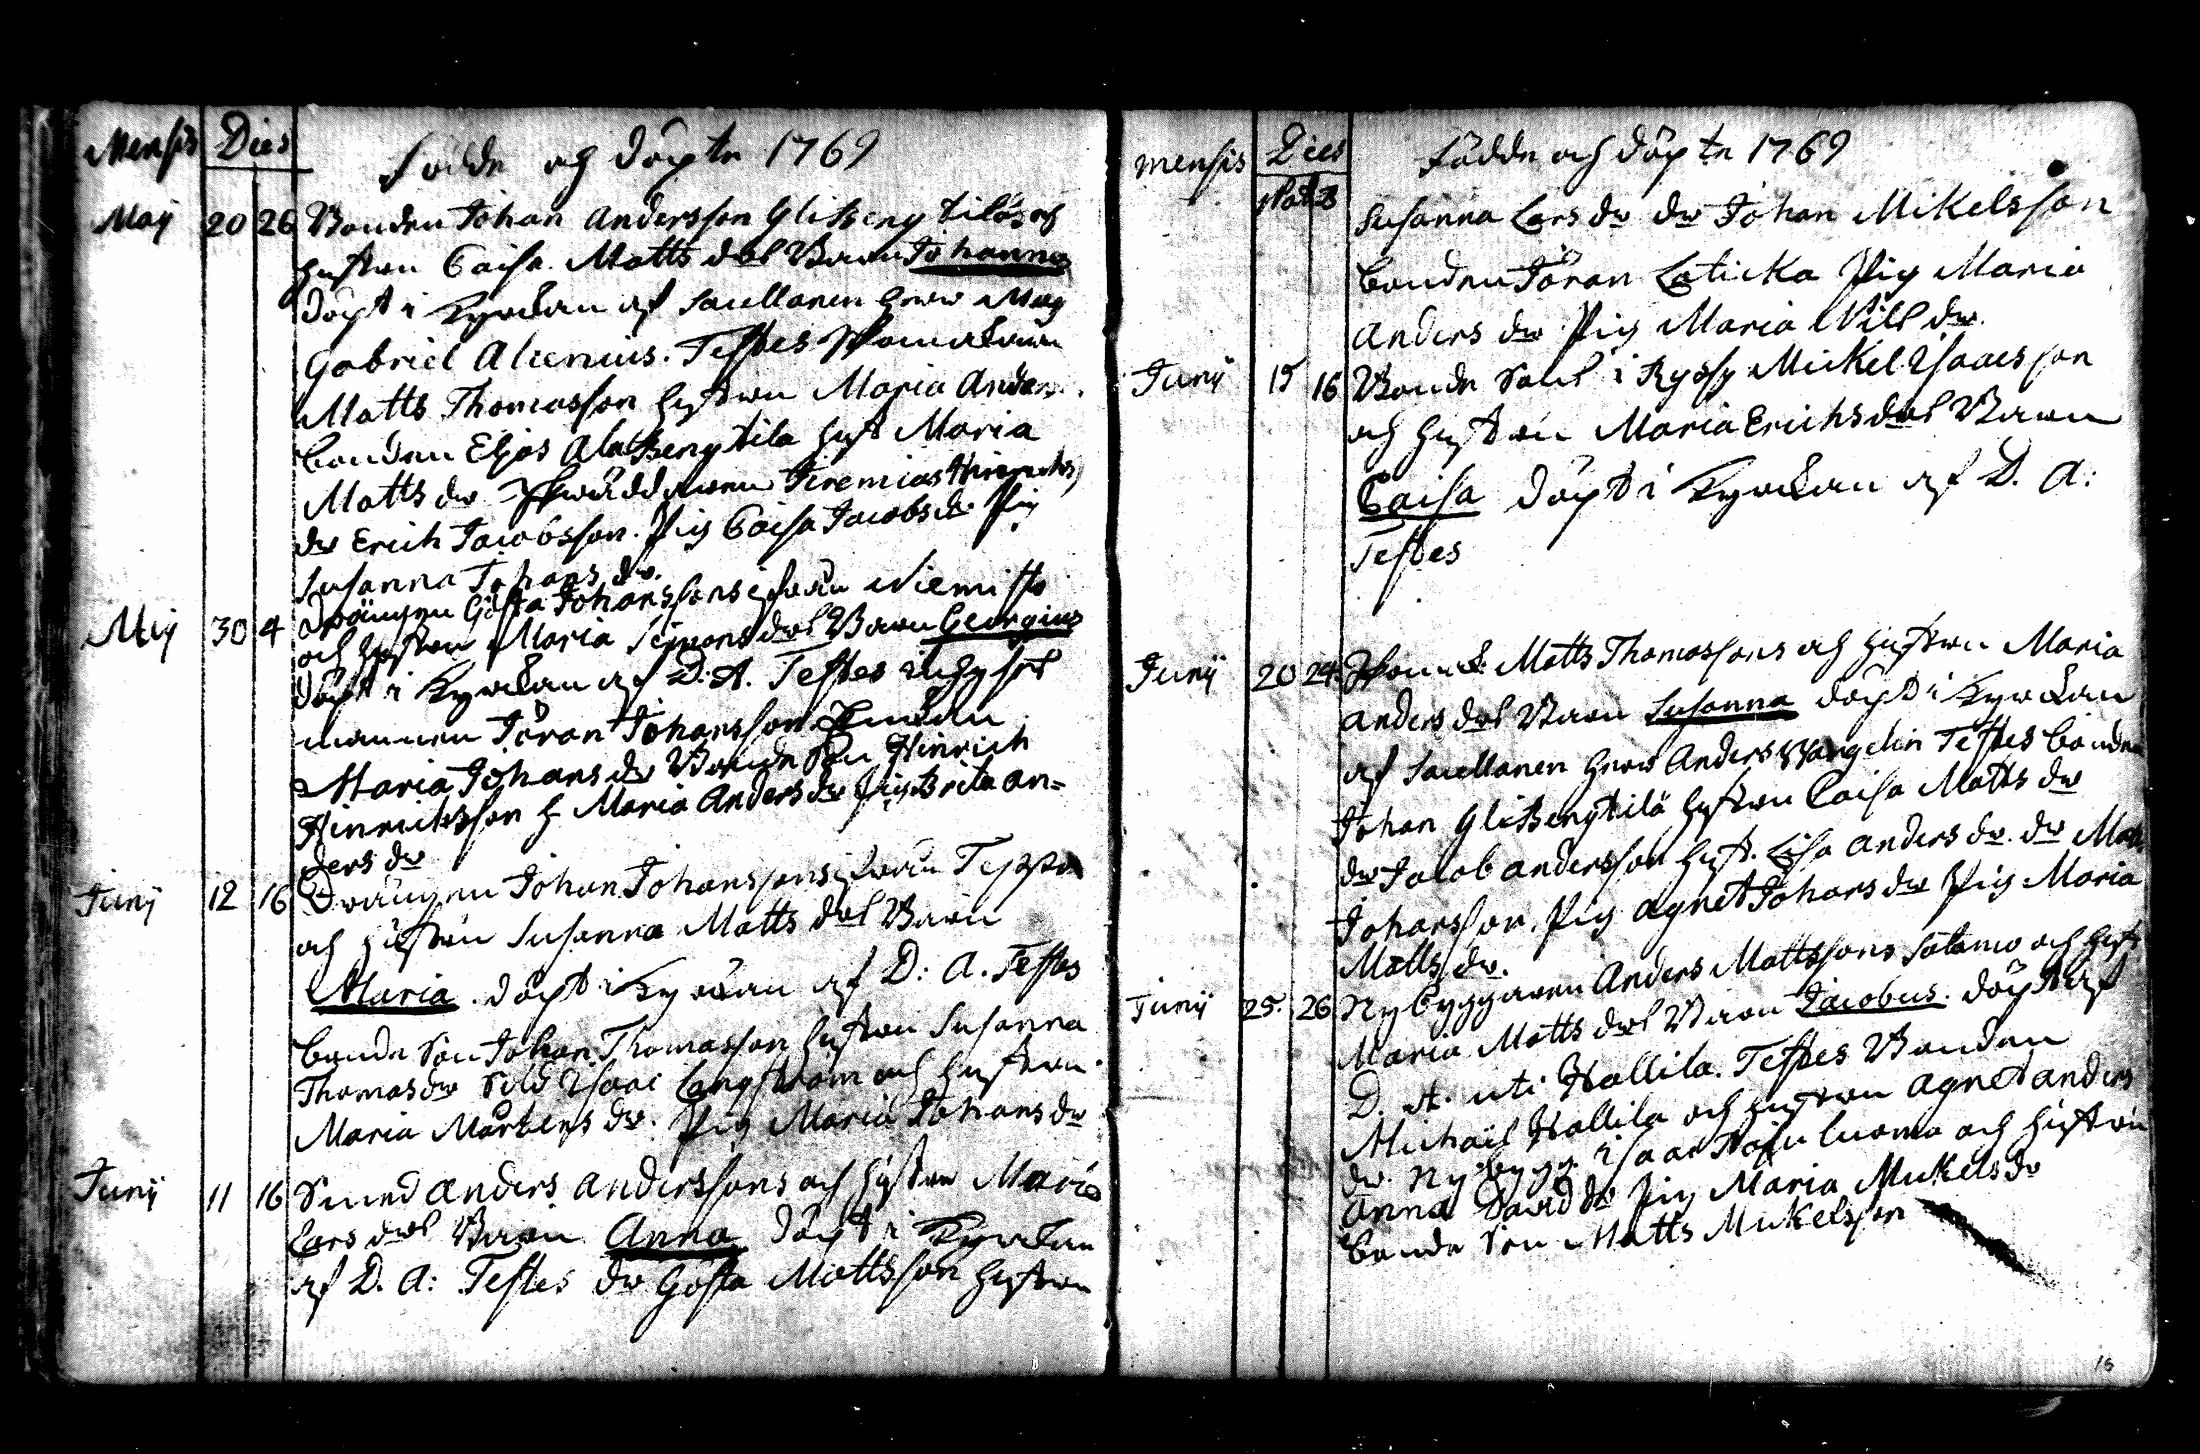 Mensis Dies Födde och döpte 1769
Maij 20 26 Bonden Johan Andersson Glisbengtilös och
hustrun Caisa Matts dotl Barn Johannes
döpt i Kyrckan af Sacellanen Herr Mag
Gabriel Alcenius. Testes Skomakaren
Matts Thomasson hustrun Maria Anders
bonden Elias Alabengtila hust Maria
Matts dr Skräddaren Jeremias
dr Erich Jacobsson. Pig Caisa Jacobs dr Pig
Susanna Johans dr.
Maij 30 4 Drängen Gösta Johanssons ifrån Niemistö
och hustrun Maria Simons dotl Barn Georgius
döpt i Kyrckan af D. A. Testes inhyses
mannen Jöran Johansson Enckan
Maria Johans dr Bonde Son Hinrich
Hinrichsson h Maria Anders dr Pig Brita An=
ders dr
Junij 12 16 Drängen Johan Johanssons ifrån Teppo
och hustrun Susanna Matts dotl Barn
Maria döpt i Kyrckan af D: A. Testes
bonde Son Johan Thomasson hustrun Susanna
Thomas dr Sold Isaac Långström och hustrun
Maria Mårtens dr. Pig Maria Johans dr
Junij 11 16 Smed Anders Anderssons och hustrun Maria
Lars dotl Barn Anna döpt i Kyrckan
af D. A: Testes dr Gösta Mattsson hustrun
mensis Dies Födde och döpte 1769
Susanna Lars dr dr Johan Mikelsson
bonden Jöran Laticka Pig Maria
Anders dr Pig Maria Nills dr.
Junij 15 16 Bonde Sons i Mickel Isaacsson
och hustrun Maria Erichs dotl Barn
Caisa döpt i Kyrckan af D. A:
Testes
Junij 20 24. Skomak Matts Thomassons och hustrun Maria
Anders dotl Barn Susanna döpt i Kyrckan
af Sacellanen Herr Anders Wargelin Testes bonden
Johan Glisbengtilä hustrun Caisa Matts dr
dr Jacob Andersson hust. Lisa Anders dr. dr Matts
Johansson. Pig Agnet Johans dr Pig Maria
Matts dr.
Junij 25. 26 Nybyggaren Anders Mattssons Salamo och hust
Maria Matts dotl Barn Jacobus. döpt af
D. A. uti Hallila. Testes Bonden
Michaël Hallila och hustrun Agnet Anders
dr. Nybygg. Isaac luoma och hustrun
Anna David dr Pig Maria Mickels dr
bonde Son Matts Mickelsson
16